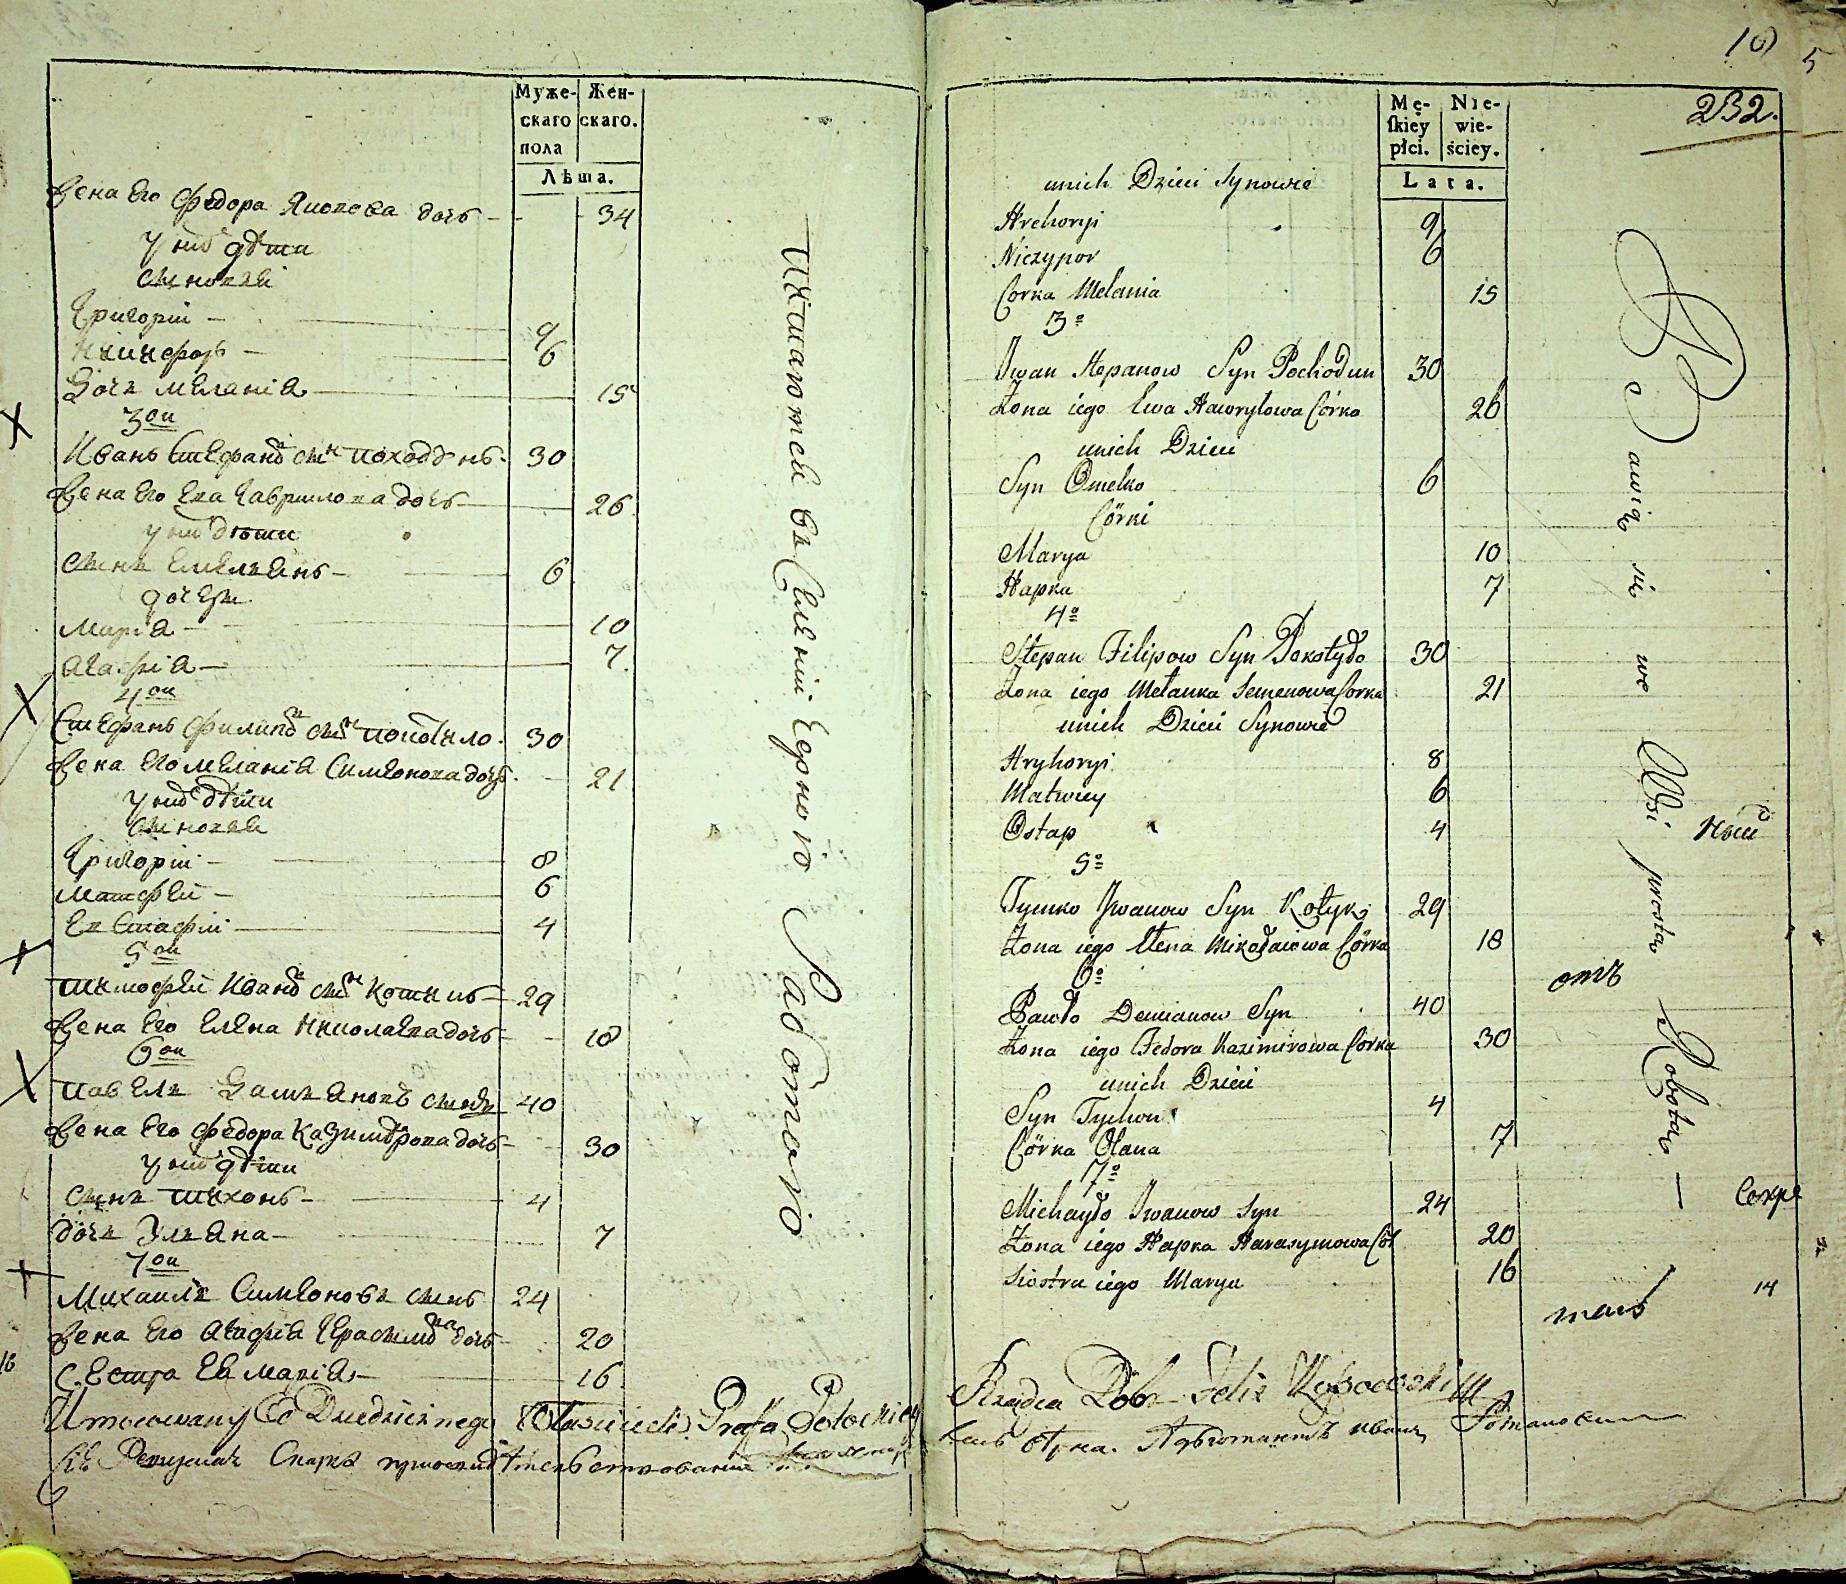 Муже-
скаго
пола
Жен-
скаго.
Лѣта.
Жена Его Федора Якова дочь - - 34
у них дѣти
сыновьи
Григорій - 9
Никифоръ - 6
Дочь Меланія 15
3ои
Иванъ Стефанов сын Походунъ 30
Жена Его Ева Гаврилова дочь 26
у них дѣти
Сынъ Емельянъ - 6
дочери
Марія - 10
Агафія - 7.
4ои
Стефанъ Филипов сын 30
Жена Его Меланія Симеонова дочь 21
у них дѣти
сыновьи
Григорій - 8
Матфей - 6
Евстафій 4
5ои
Тимофей Иванов сын Котикъ 29
Жена Его Елена Николаева дочь 18
6ои
Павелъ Дамьяновъ сынъ 40
Жена Его Федора Казимѣрова дочь 30
у них дѣти
Сынъ Тихонъ - 4
дочь Ульяна - 7
7ои
Михаилъ Симеоновъ сынъ 24
Жена Его Агафія Герасимова дочь 20
Сестра Ев Марія 16
16
Питаются въ Селеніи Черною Работою
Umocowany Od Dziedzicznego Własciciela Grafa Potockiey
Къ Ревизскат Сказкѣ
10
5
232.
Mę-
ſkiey
płci.
Nie-
wie-
ściey.
Lata.
unich Dzieci Synowie
Hrehoryi 9
Niczypor 6
Corka Melania 15
3o
Jwan Stepanow Syn Pochodun 30
Zona iego Ewa Hawryłowa Córka 26
unich Dzieci
Syn Omelko 6
Córki
Marya 10
Hapka 7
4o
Stepan Filipow Syn 30
Zona iego Mełanka Semenowa Corka 21
unich Dzieci Synowie
Hryhoryi 8
Matwiey 6
Ostap 4
5o
Tymko Jwanow Syn 29
Zona iego Ełena Mikołaiowa Córka 18
6o
Pawło Demianow Syn 40
Zona iego Fedora Kazimirowa Corka 30
unich Dzieci
Syn Tychon 4
Córka Olana 7
7o
Michayło Jwanow Syn 24
Zona iego Hapka Harasymowa Cór 20
Siostra iego Marya 16
Bawią się we Wsi prostą Robotą —
отъ
14
Rządca Dobr Felix